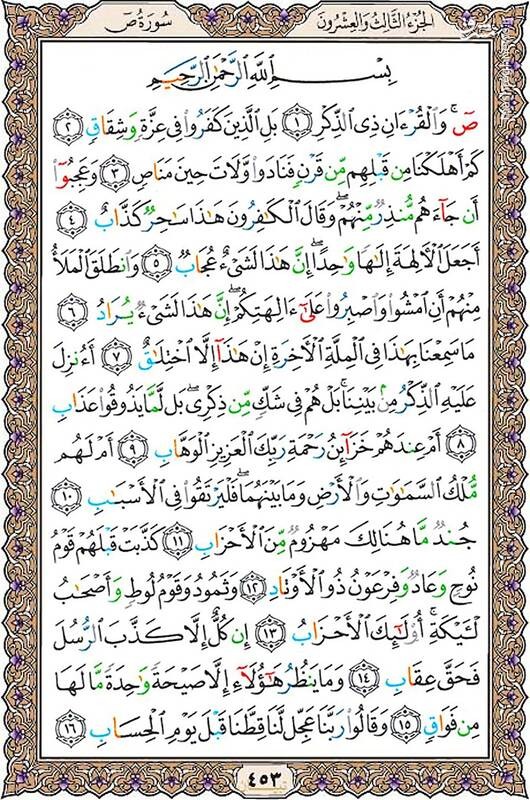 سُورَةُ صٓ
الجُزءُ الثَّالِثُ وَالعِشرُونَ
بِسْمِ ٱللَّهِ ٱلرَّحْمَٰنِ ٱلرَّحِيمِ
صٓ ۚ وَٱلْقُرْءَانِ ذِى ٱلذِّكْرِ ﴿١﴾ بَلِ ٱلَّذِينَ كَفَرُوا۟ فِى عِزَّةٍ وَشِقَاقٍ ﴿٢﴾
كَمْ أَهْلَكْنَا مِن قَبْلِهِم مِّن قَرْنٍ فَنَادَوا۟ وَّلَاتَ حِينَ مَنَاصٍ ﴿٣﴾ وَعَجِبُوٓا۟
أَن جَآءَهُم مُّنذِرٌ مِّنْهُمْ ۖ وَقَالَ ٱلْكَٰفِرُونَ هَٰذَا سَٰحِرٌ كَذَّابٌ ﴿٤﴾
أَجَعَلَ ٱلْـَٔالِهَةَ إِلَٰهًا وَٰحِدًا ۖ إِنَّ هَٰذَا لَشَىْءٌ عُجَابٌ ﴿٥﴾ وَٱنطَلَقَ ٱلْمَلَأُ
مِنْهُمْ أَنِ ٱمْشُوا۟ وَٱصْبِرُوا۟ عَلَىٰٓ ءَالِهَتِكُمْ ۖ إِنَّ هَٰذَا لَشَىْءٌ يُرَادُ ﴿٦﴾
مَا سَمِعْنَا بِهَٰذَا فِى ٱلْمِلَّةِ ٱلْـَٔاخِرَةِ إِنْ هَٰذَآ إِلَّا ٱخْتِلَٰقٌ ﴿٧﴾ أَءُنزِلَ
عَلَيْهِ ٱلذِّكْرُ مِنۢ بَيْنِنَا ۚ بَلْ هُمْ فِى شَكٍّ مِّن ذِكْرِى ۖ بَل لَّمَّا يَذُوقُوا۟ عَذَابِ
﴿٨﴾ أَمْ عِندَهُمْ خَزَآئِنُ رَحْمَةِ رَبِّكَ ٱلْعَزِيزِ ٱلْوَهَّابِ ﴿٩﴾ أَمْ لَهُم
مُّلْكُ ٱلسَّمَٰوَٰتِ وَٱلْأَرْضِ وَمَا بَيْنَهُمَا ۖ فَلْيَرْتَقُوا۟ فِى ٱلْأَسْبَٰبِ ﴿١٠﴾
جُندٌ مَّا هُنَالِكَ مَهْزُومٌ مِّنَ ٱلْأَحْزَابِ ﴿١١﴾ كَذَّبَتْ قَبْلَهُمْ قَوْمُ
نُوحٍ وَعَادٌ وَفِرْعَوْنُ ذُو ٱلْأَوْتَادِ ﴿١٢﴾ وَثَمُودُ وَقَوْمُ لُوطٍ وَأَصْحَٰبُ
لْـَٔيْكَةِ ۚ أُو۟لَٰٓئِكَ ٱلْأَحْزَابُ ﴿١٣﴾ إِن كُلٌّ إِلَّا كَذَّبَ ٱلرُّسُلَ
فَحَقَّ عِقَابِ ﴿١٤﴾ وَمَا يَنظُرُ هَٰٓؤُلَآءِ إِلَّا صَيْحَةً وَٰحِدَةً مَّا لَهَا
مِن فَوَاقٍ ﴿١٥﴾ وَقَالُوا۟ رَبَّنَا عَجِّل لَّنَا قِطَّنَا قَبْلَ يَوْمِ ٱلْحِسَابِ ﴿١٦﴾
٤٥٣